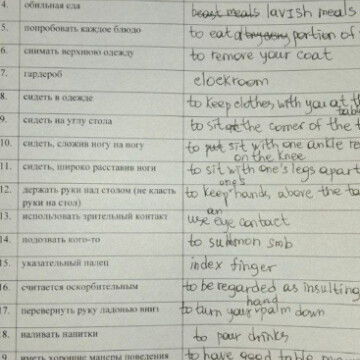 4. обильная еда beast meals lavish meals
5. попробовать каждое блюдо to eat a portion of
6. снимать верхнюю одежду to remove your coat
7. гардероб cloekroom
8. сидеть в одежде to keep clothes with you at the table
9. сидеть на углу стола to sit at the corner of the
10. сидеть, сложив ногу на ногу to put sit with one ankle
on the knee
11. сидеть, широко расставив ноги to sit with one's legs apart
12. держать руки над столом (не класть to keep one's hands above the
руки на стол)
13. использовать зрительный контакт use an eye contact
14. подозвать кого-то to summon smb
15. указательный палец index finger
16. считается оскорбительным to be regarded as insulting
17. перевернуть руку ладонью вниз to turn your hand palm down
18. наливать напитки to pour drinks
9. иметь хорошие манеры поведения to have good table